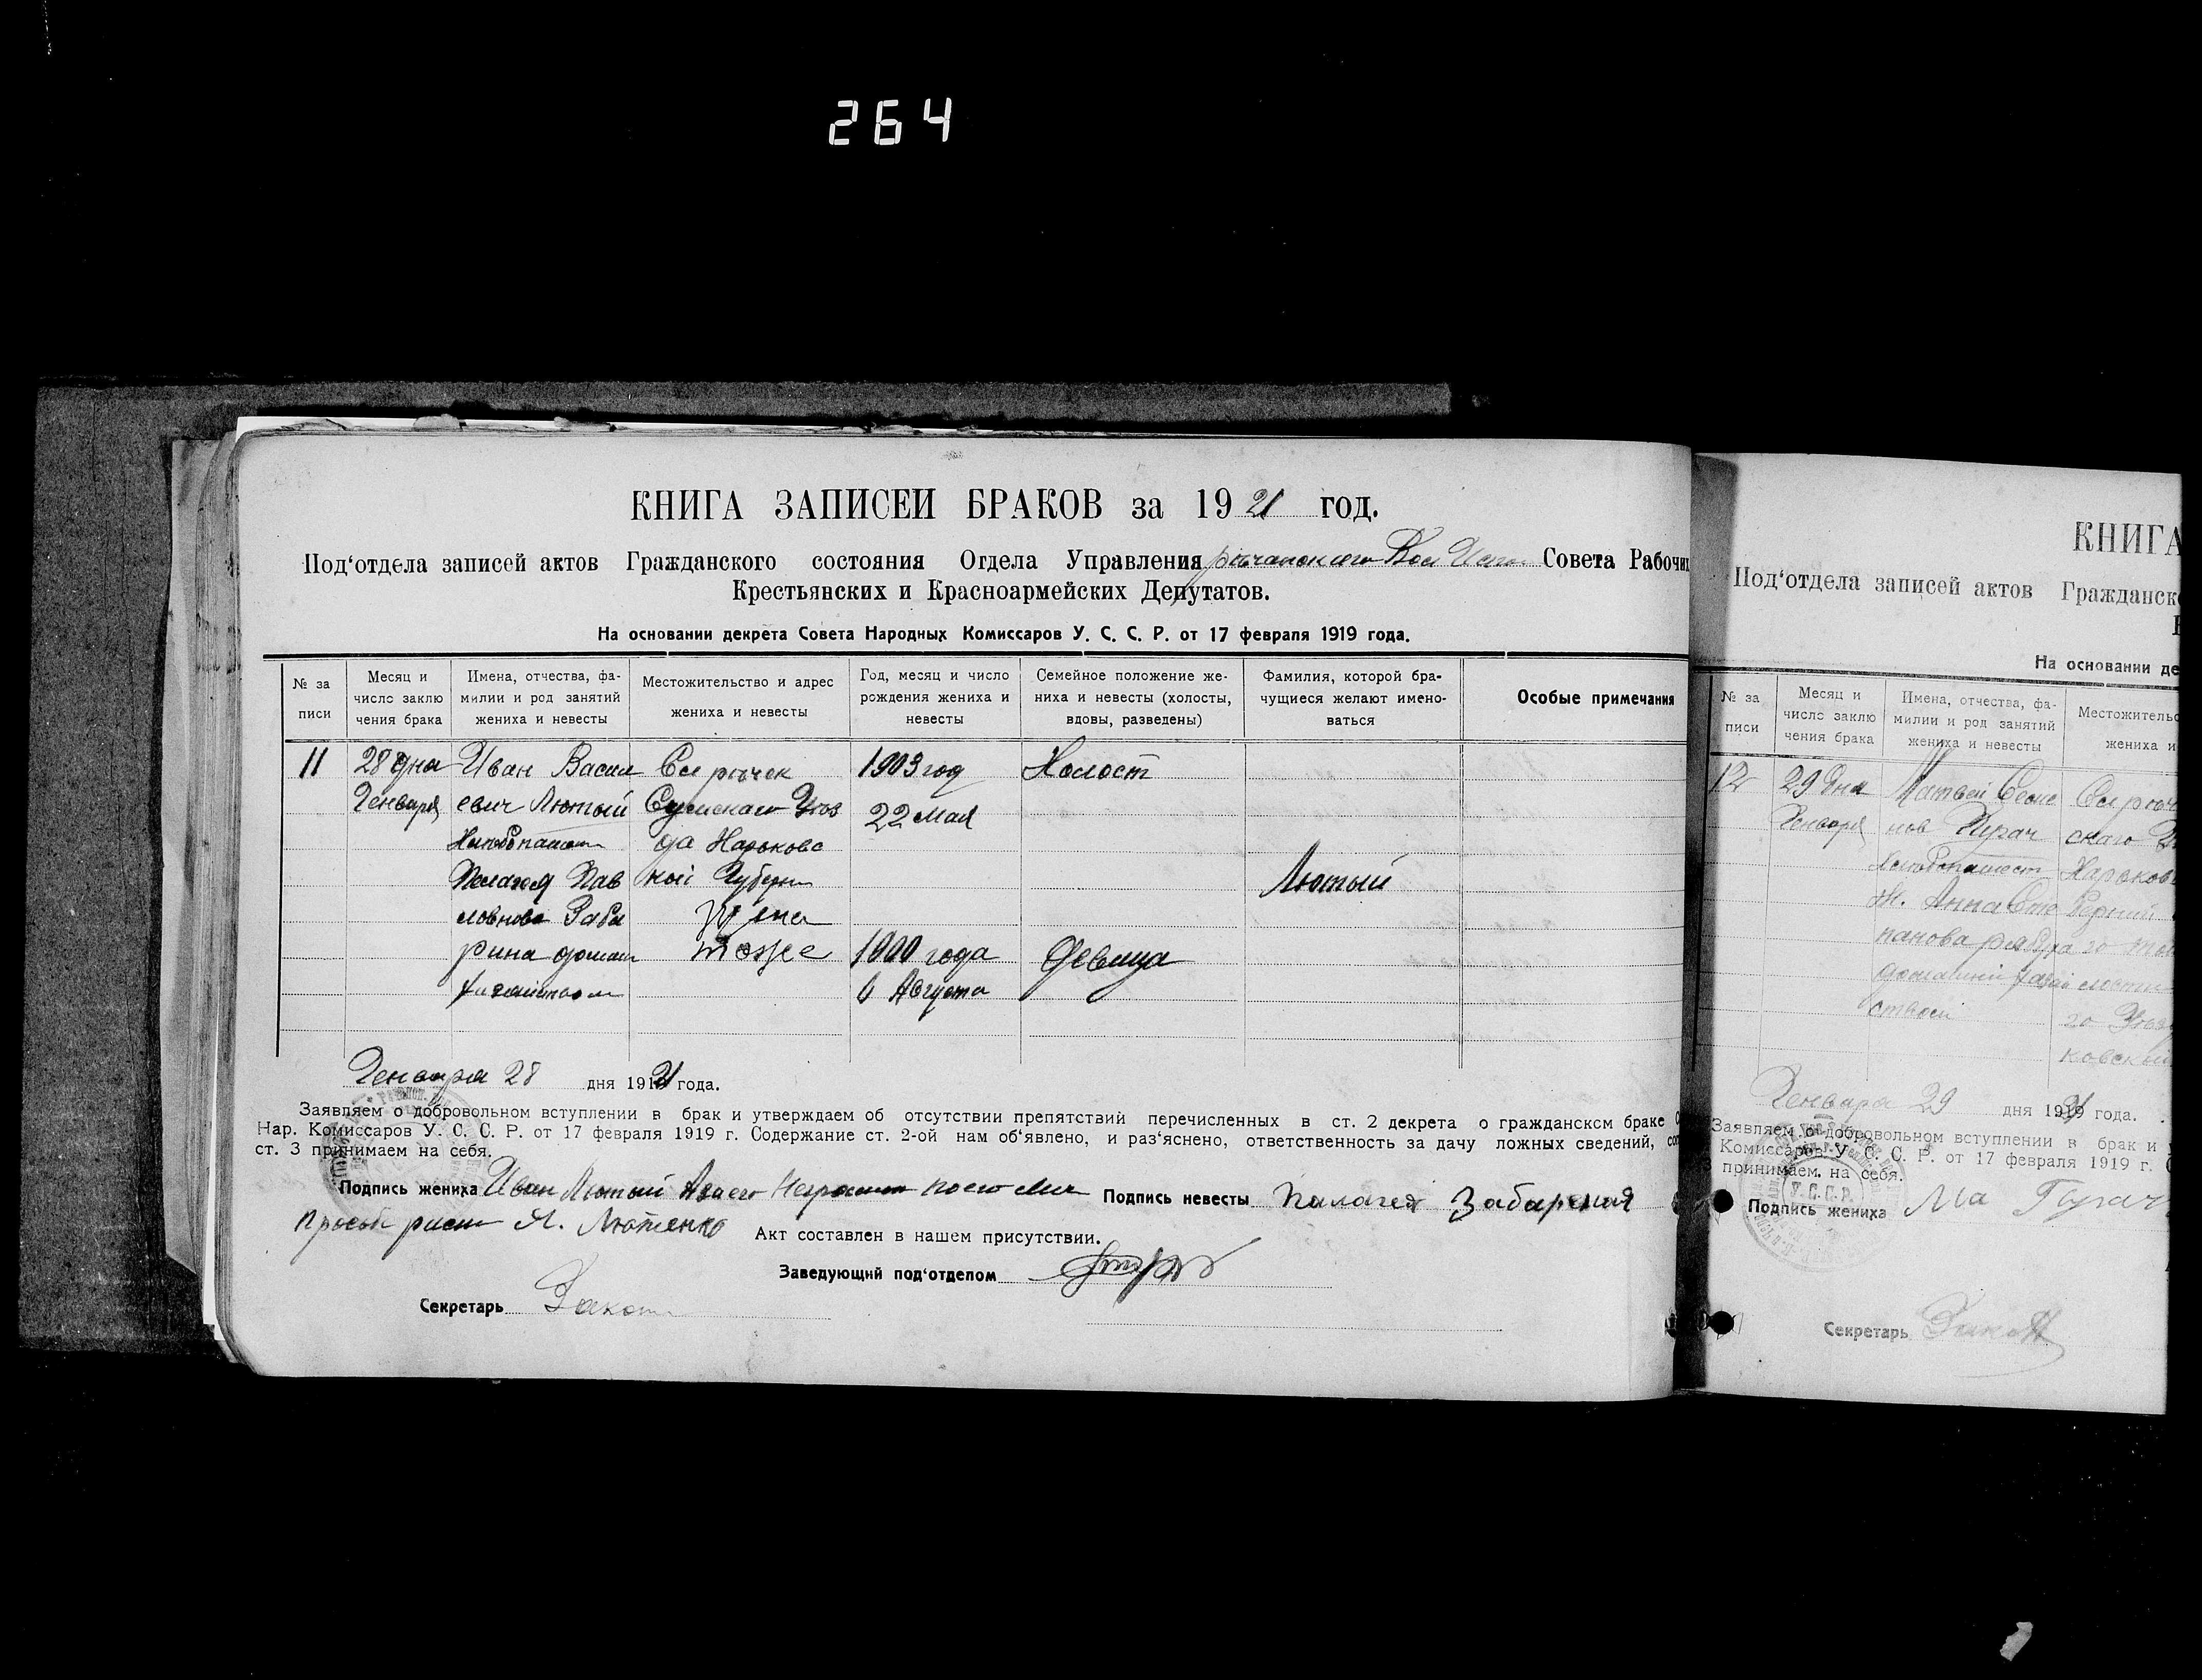 264
КНИГА ЗАПИСЕЙ БРАКОВ за 1921 год.
Под‘отдела записей актов Гражданского состояния Отдела Управления Совета Рабочих
Крестьянских и Красноармейских Депутатов.
На основании декрета Совета Народных Комиссаров У. С. С. Р. от 17 февраля 1919 года.
№ за
писи
Месяц и
число заклю
чения брака
Имена, отчества, фа-
милии и род занятий
жениха и невесты
Местожительство и адрес
жениха и невесты
Год, месяц и число
рождения жениха и
невесты
Семейное положение же-
ниха и невесты (холосты,
вдовы, разведены)
Фамилия, которой бра-
чущиеся желают имено-
ваться
Особые примечания
11
28 дня
Генваря
Иван Васил
евич Лютый
Пелагея Пав
ловнова Заба
рина домаш
Сел речек
Сумскаго Уез
да Харьковс
кой Губерн
Жена
тоже
1903 год
22 Мая
1900 года
6 Августа
Холост
Девица
Лютый
Генваря 28 дня 1921 года.
Заявляем о добровольном вступлении в брак и утверждаем об отсутствии препятствий перечисленных в ст. 2 декрета о гражданском браке С
Нар. Комиссаров У. С. С. Р. от 17 февраля 1919 г. Содержание ст. 2-ой нам об‘явлено, и раз‘яснено, ответственность за дачу ложных сведений, сог
ст. 3 принимаем на себя.
Подпись жениха Иван Лютый Аза его Неграмот по его Лич Подпись невесты Палагея Забарская
Просьб расп Я. Лютенко
Акт составлен в нашем присутствии.
Заведующий под‘отделом
Секретарь
КНИГА
Под‘отдела записей актов Гражданск
На основании де
№ за
писи
Месяц и
число заклю
чения брака
Имена, отчества, фа-
милии и род занятий
жениха и невесты
Местожительс
жениха и
12
29 дня
Генваря
Матвей Семе
нов Пугач
Ж. Анна Сте
панова
домашний
ством
Сел реч
скаго
Харьков
Генваря 29 дня 1921 года.
Заявляем о добровольном вступлении в брак и у
Комиссаров У. С. С. Р. от 17 февраля 1919 г. С
3 принимаем на себя.
У.С.С.Р.
Подпись жениха Ма Пугач
Секретарь